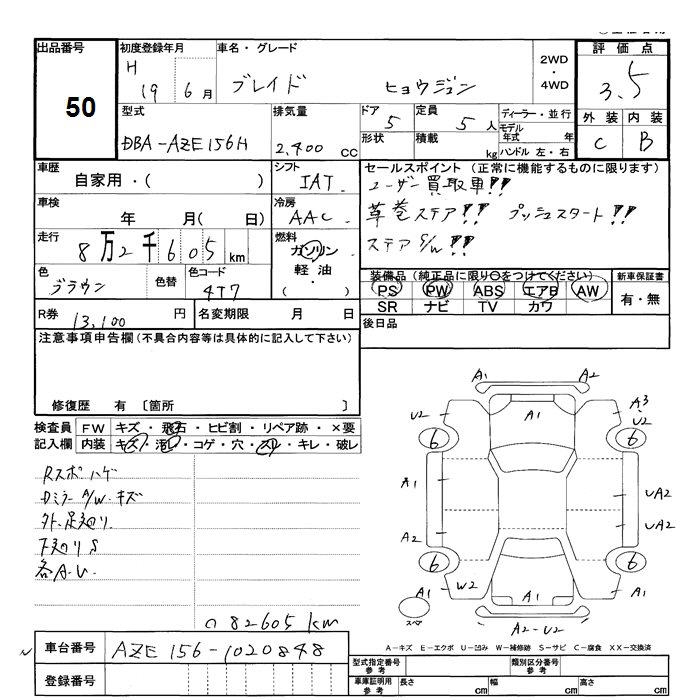 出品番号 初度登録年月 車名・グレード 2WD・4WD 評価点
50 H 19 6月 ブレイド ヒョウジュン 3.5
型式 排気量 ドア 5 定員 5人 ディーラー・並行 外装 内装
DBA-AZE156H 2,400 CC 形状 積載 kg モデル年式 年 C B
ハンドル 左・右
車歴 自家用・( ) シフト IAT セールスポイント (正常に機能するものに限ります)
ユーザー買取車!!
車検 年 月( 日) 冷房 AAC 革巻ステア!! プッシュスタート!!
走行 8万2千605km 燃料 ガソリン 軽油・( ) ステアS/W!!
色 ブラウン 色替 色コード 4T7 装備品 (純正品に限り○をつけてください) 新車保証書
PS PW ABS エアB AW 有・無
SR ナビ TV カワ
R券 13,100円 名変期限 月 日 後日品
注意事項申告欄 (不具合内容等は具体的に記入して下さい)
修復歴 有 〔箇所 〕
検査員 FW キズ・飛石・ヒビ割・リペア跡・×要
記入欄 内装 キズ・汚・コゲ・穴・スレ・キレ・破レ
Rスポハゲ
DミラーA/W・キズ
外・足廻り
下廻りS
各A・U
82605km
A1 A2
U2 A1 A3
U2
6 6
A1
UA2
UA2
A2
6 6
A1 W2 A1 A1
スペア A2-U2
A-キズ E-エクボ U-凹み W-補修跡 S-サビ C-腐食 XX-交換済
車台番号 AZE156-1020848
登録番号
型式指定番号 参考 類別区分番号 参考
車庫証明用 参考 長さ cm 幅 cm 高さ cm